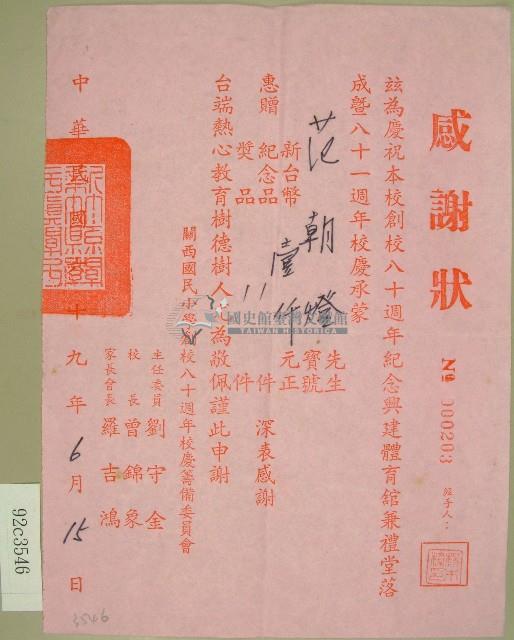 感謝狀
Nº 000203
經手人：
玆為慶祝本校創校八十週年紀念興建體育舘兼禮堂落
成暨八十一週年校慶承蒙
范朝燈 先生 寶號
新台幣 壹仟 元正
惠贈 紀念品 件 深表感謝
獎品 件
台端熱心教育樹德樹人 為敬佩謹此申謝
關西國民小學創校八十週年校慶籌備委員會
主任委員 劉守金
校長 曾錦象
家長會長 羅吉鴻
中華民國 十九年6月15日
國史館臺灣文獻館
TAIWAN HISTORICA
92c3546
3546